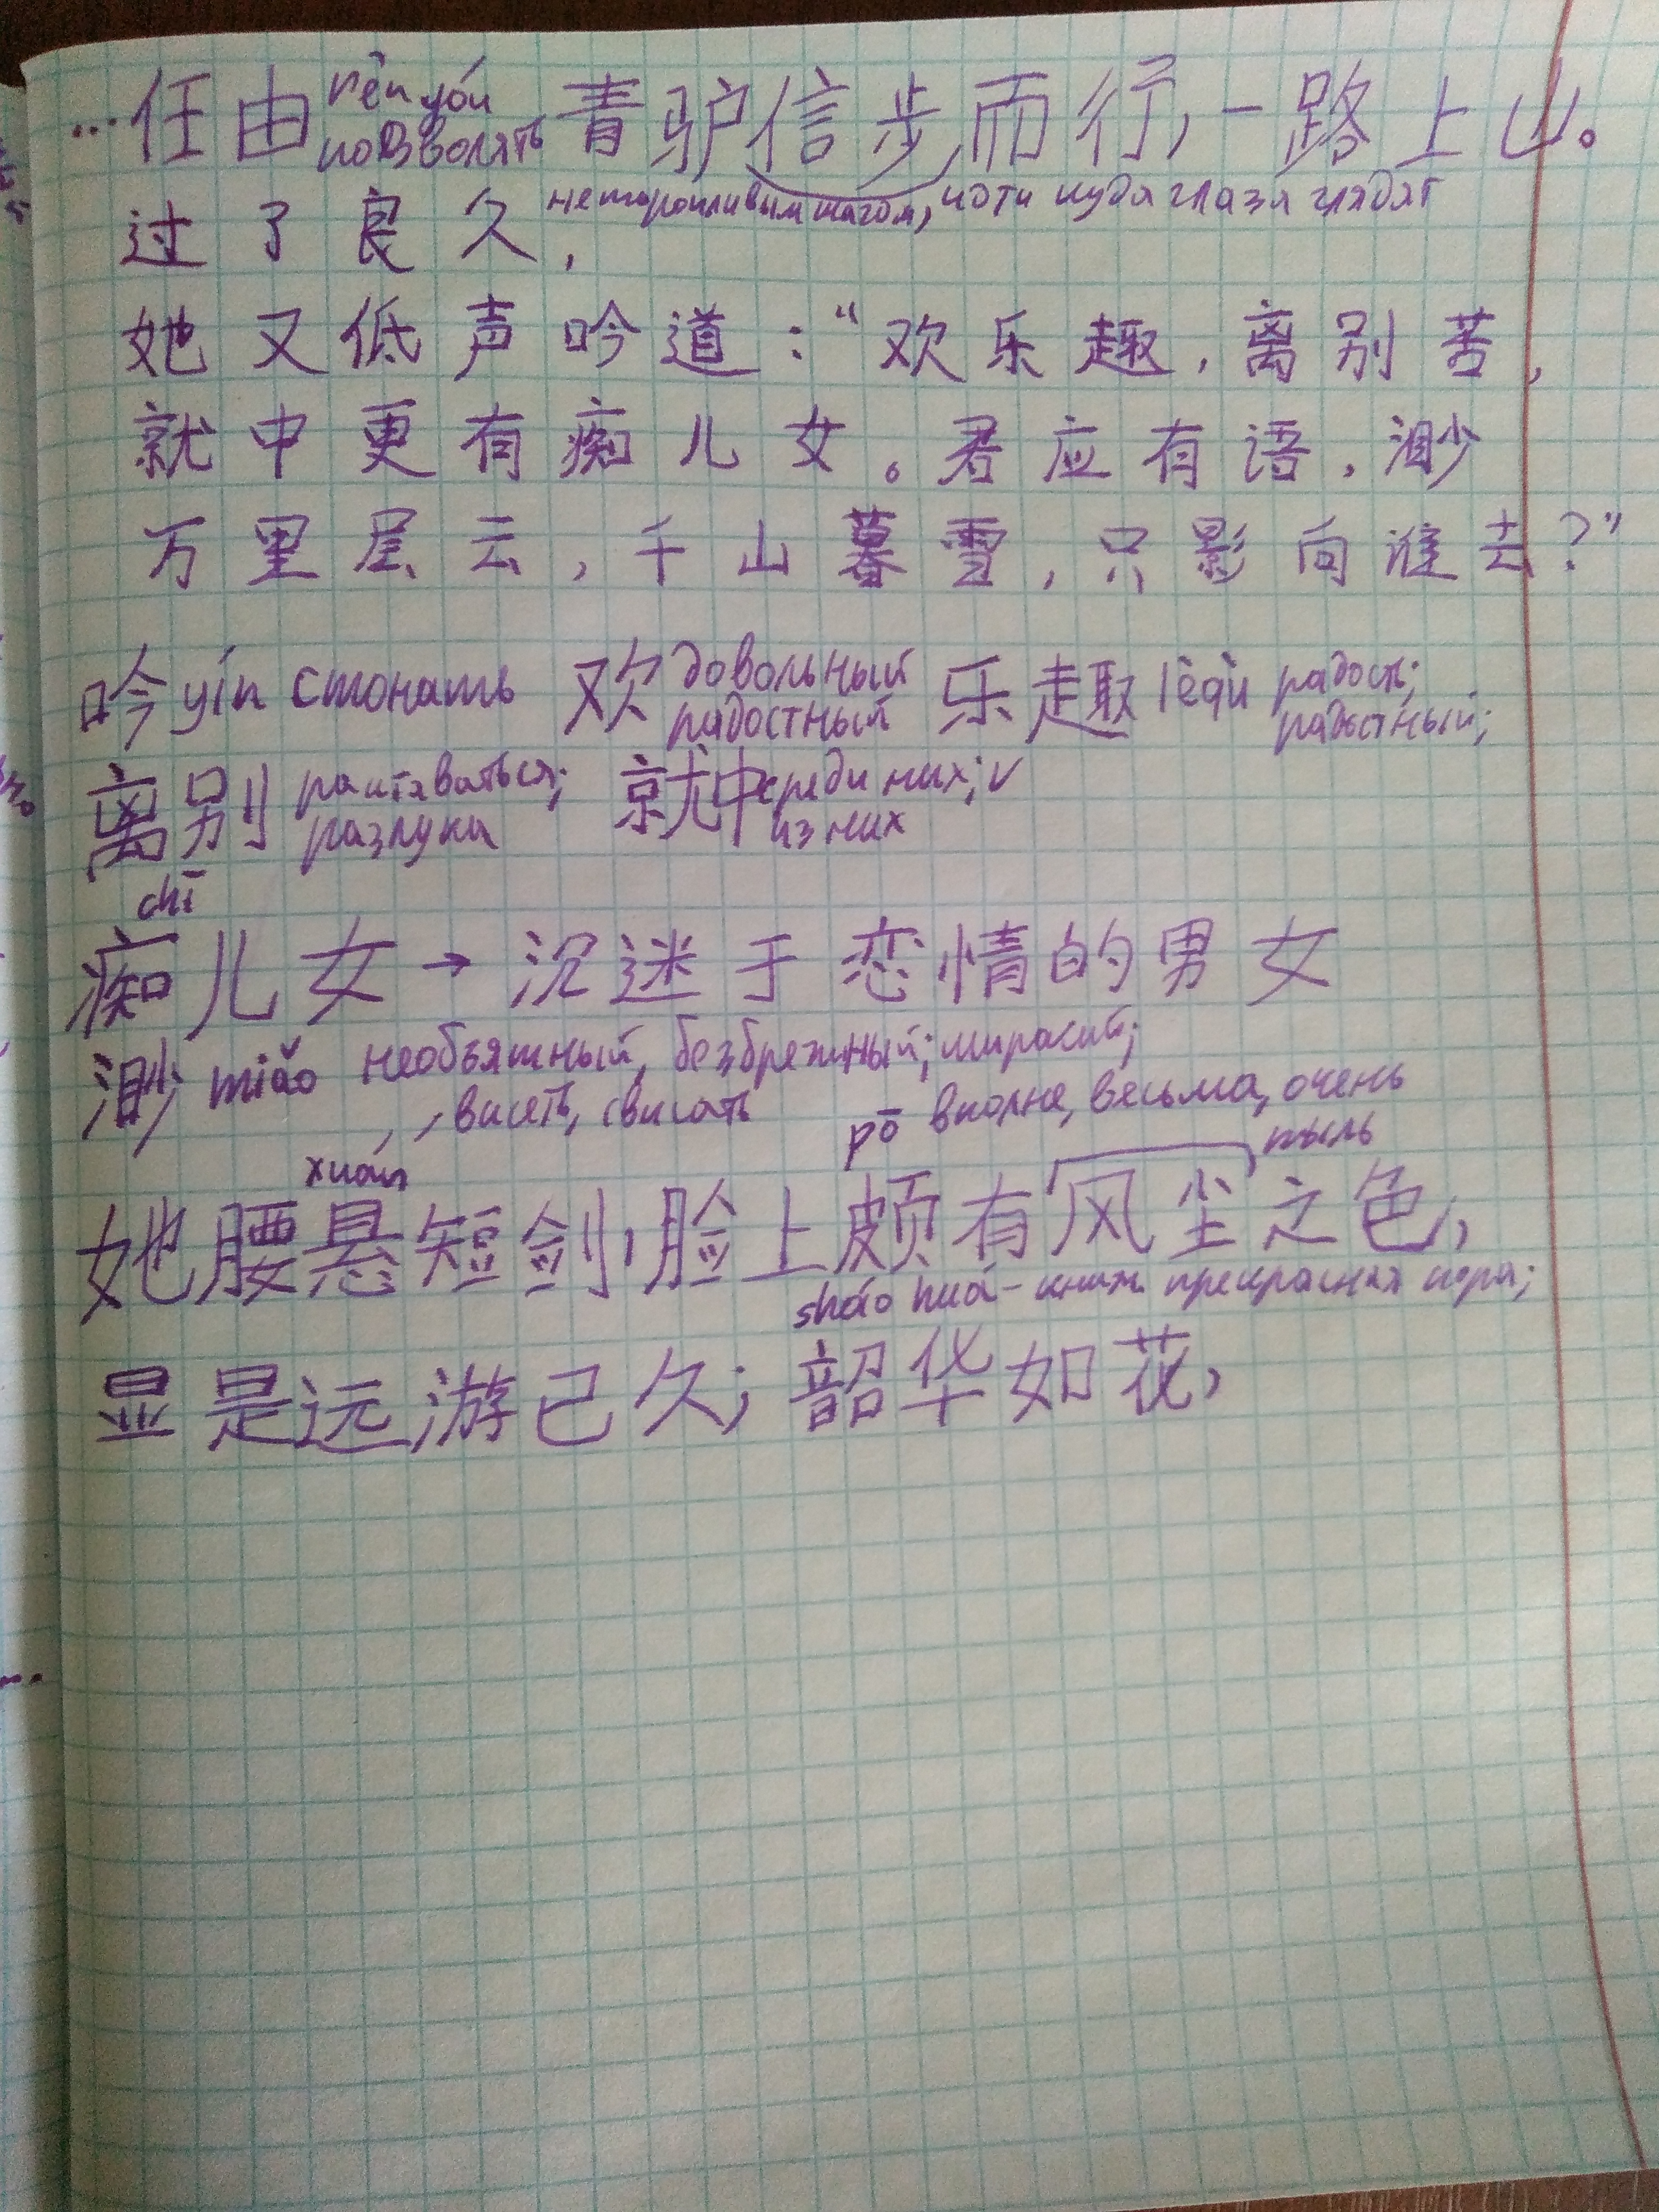 ...任由 rèn yóu позволять 青驴信步而行,一路上山。
неторопливым шагом, идти куда глаза глядят
过了良久,
她又低声吟道:“欢乐趣,离别苦,
就中更有痴儿女。君应有语,渺
万里层云,千山暮雪,只影向谁去?”
吟 yín стонать 欢 довольный радостный 乐趣 lèqù радость; радостный;
离别 расставаться; разлука 就中 среди них; из них
chī
痴儿女 → 沉迷于恋情的男女
渺 miǎo необъятный, безбрежный;
висеть, свисать pō вполне, весьма, очень
xuán пыль
她腰悬短剑,脸上颇有风尘之色,
sháo huá - книж. прекрасная пора;
显是远游已久;韶华如花,